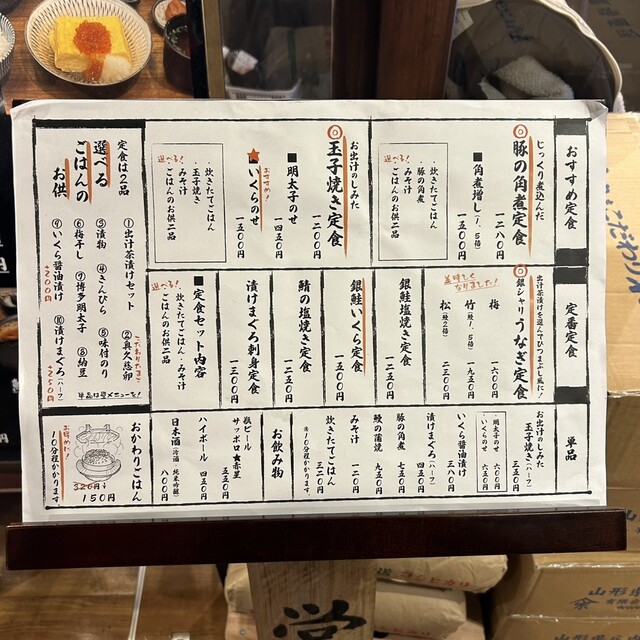 おすすめ定食
じっくり煮込んだ
◎豚の角煮定食
一二八〇円
■角煮増し(1.5倍)
一五〇〇円
選べる!
・炊きたてごはん
・豚の角煮
みそ汁
ごはんのお供二品
お出汁のしみた
◎玉子焼き定食
一二〇〇円
■明太子のせ
一四五〇円
おすすめ!
★いくらのせ
一五〇〇円
選べる!
・炊きたてごはん
・玉子焼き
みそ汁
ごはんのお供二品
定番定食
出汁茶漬けを選んでひつまぶし風に!
◎銀シャリうなぎ定食
梅 一六〇〇円
竹(鰻1.5倍) 一九五〇円
松(鰻2倍) 二三五〇円
美味しくなりました!
銀鮭塩焼き定食
一二五〇円
銀鮭いくら定食
一五〇〇円
鯖の塩焼き定食
一二五〇円
漬けまぐろ刺身定食
一三〇〇円
■定食セット内容
炊きたてごはん・みそ汁
ごはんのお供二品
選べる!
単品
お出汁のしみた
玉子焼き(ハーフ)
三五〇円
・明太子のせ 六〇〇円
・いくらのせ 六五〇円
いくら醤油漬け 三八〇円
漬けまぐろ(ハーフ) 四五〇円
豚の角煮 七五〇円
鰻の蒲焼 九五〇円
みそ汁 一二〇円
炊きたてごはん 三二〇円
※10分程かかります
お飲み物
瓶ビール
サッポロ赤星 五五〇円
ハイボール 四五〇円
日本酒(冷酒・純米吟醸) 八〇〇円
定食は2品
選べる
ごはんの
お供
①出汁茶漬けセット
②奥久慈卵
こだわりたまご
③漬物
④きんぴら
⑤味付のり
⑥梅干し
⑦博多明太子
⑧納豆
⑨いくら醤油漬け
+200円
⑩漬けまぐろ(ハーフ)
+250円
単品は裏メニューを!
おかわりごはん
320円→
150円
お好評!
10分程かかります
営